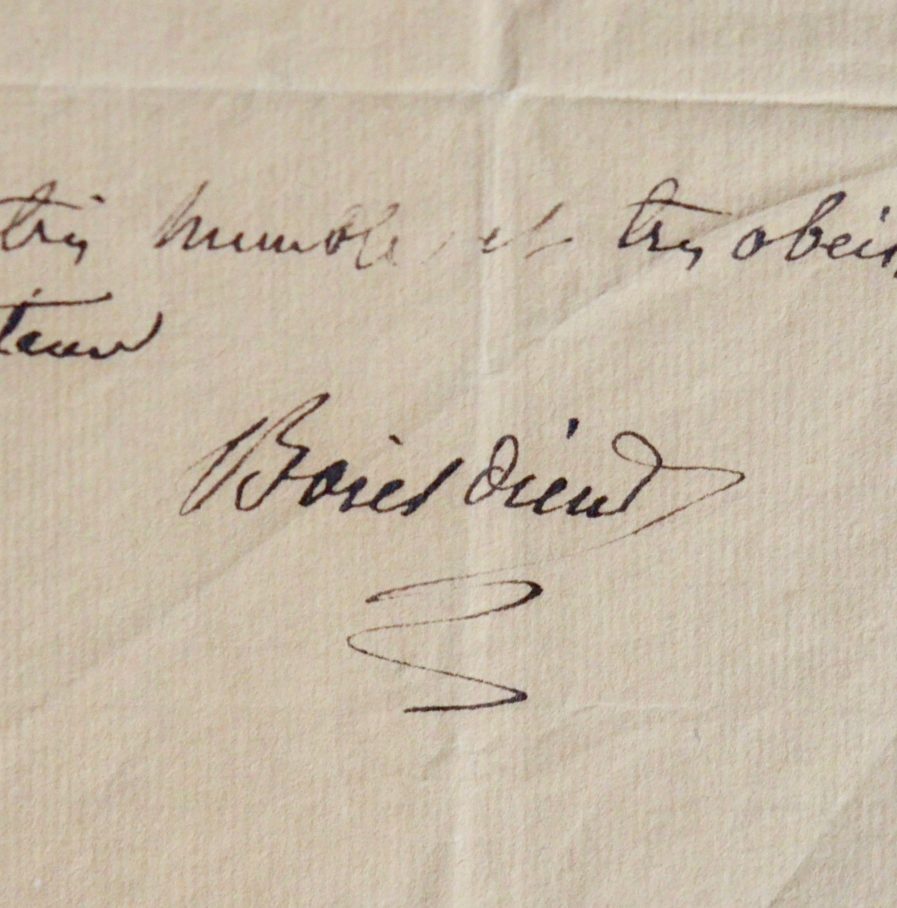 très humble et très obéis
teur
Boieldieu